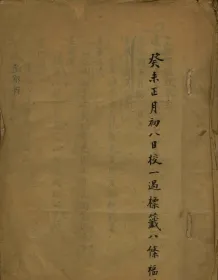 癸未正月初八日校一過標籤八條福